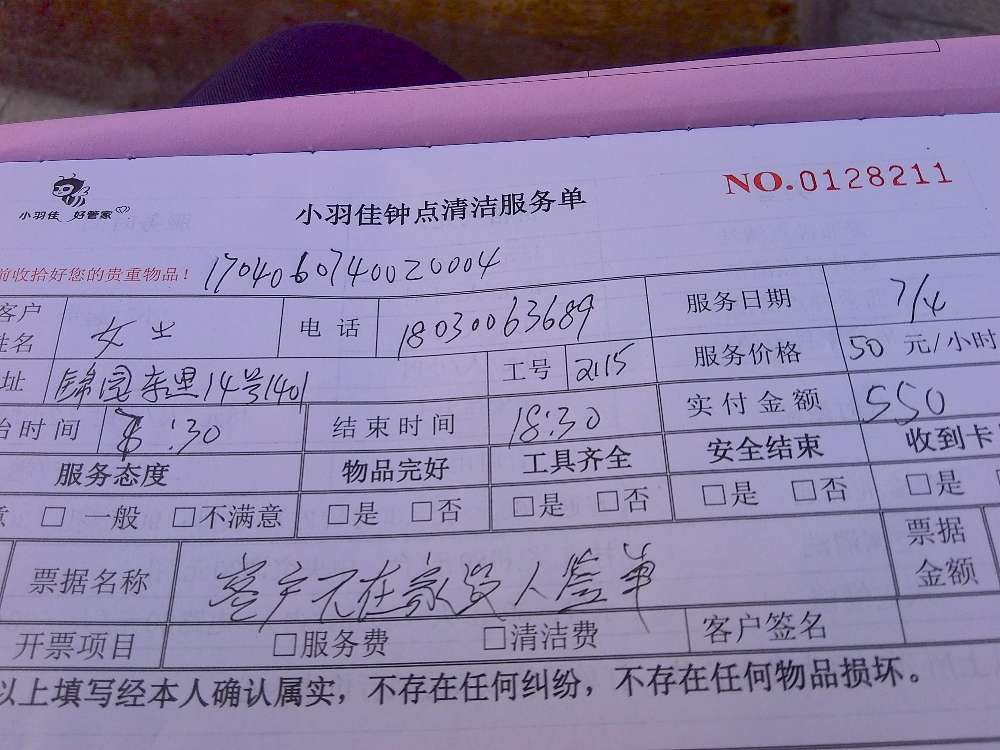 小羽佳 好管家
小羽佳钟点清洁服务单
NO.0128211
前收拾好您的贵重物品！ 1704060740020004
客户姓名 女士 电话 18030063689 服务日期 7/4
址 锦园东里14号1401 工号 2115 服务价格 50 元/小时
始时间 :30 结束时间 18:30 实付金额 550
服务态度 物品完好 工具齐全 安全结束 收到卡
意 □ 一般 □不满意 □是 □否 □是 □否 □是 □否 □是
票据名称 客户不在家没人签单 票据金额
开票项目 □服务费 □清洁费 客户签名
以上填写经本人确认属实，不存在任何纠纷，不存在任何物品损坏。